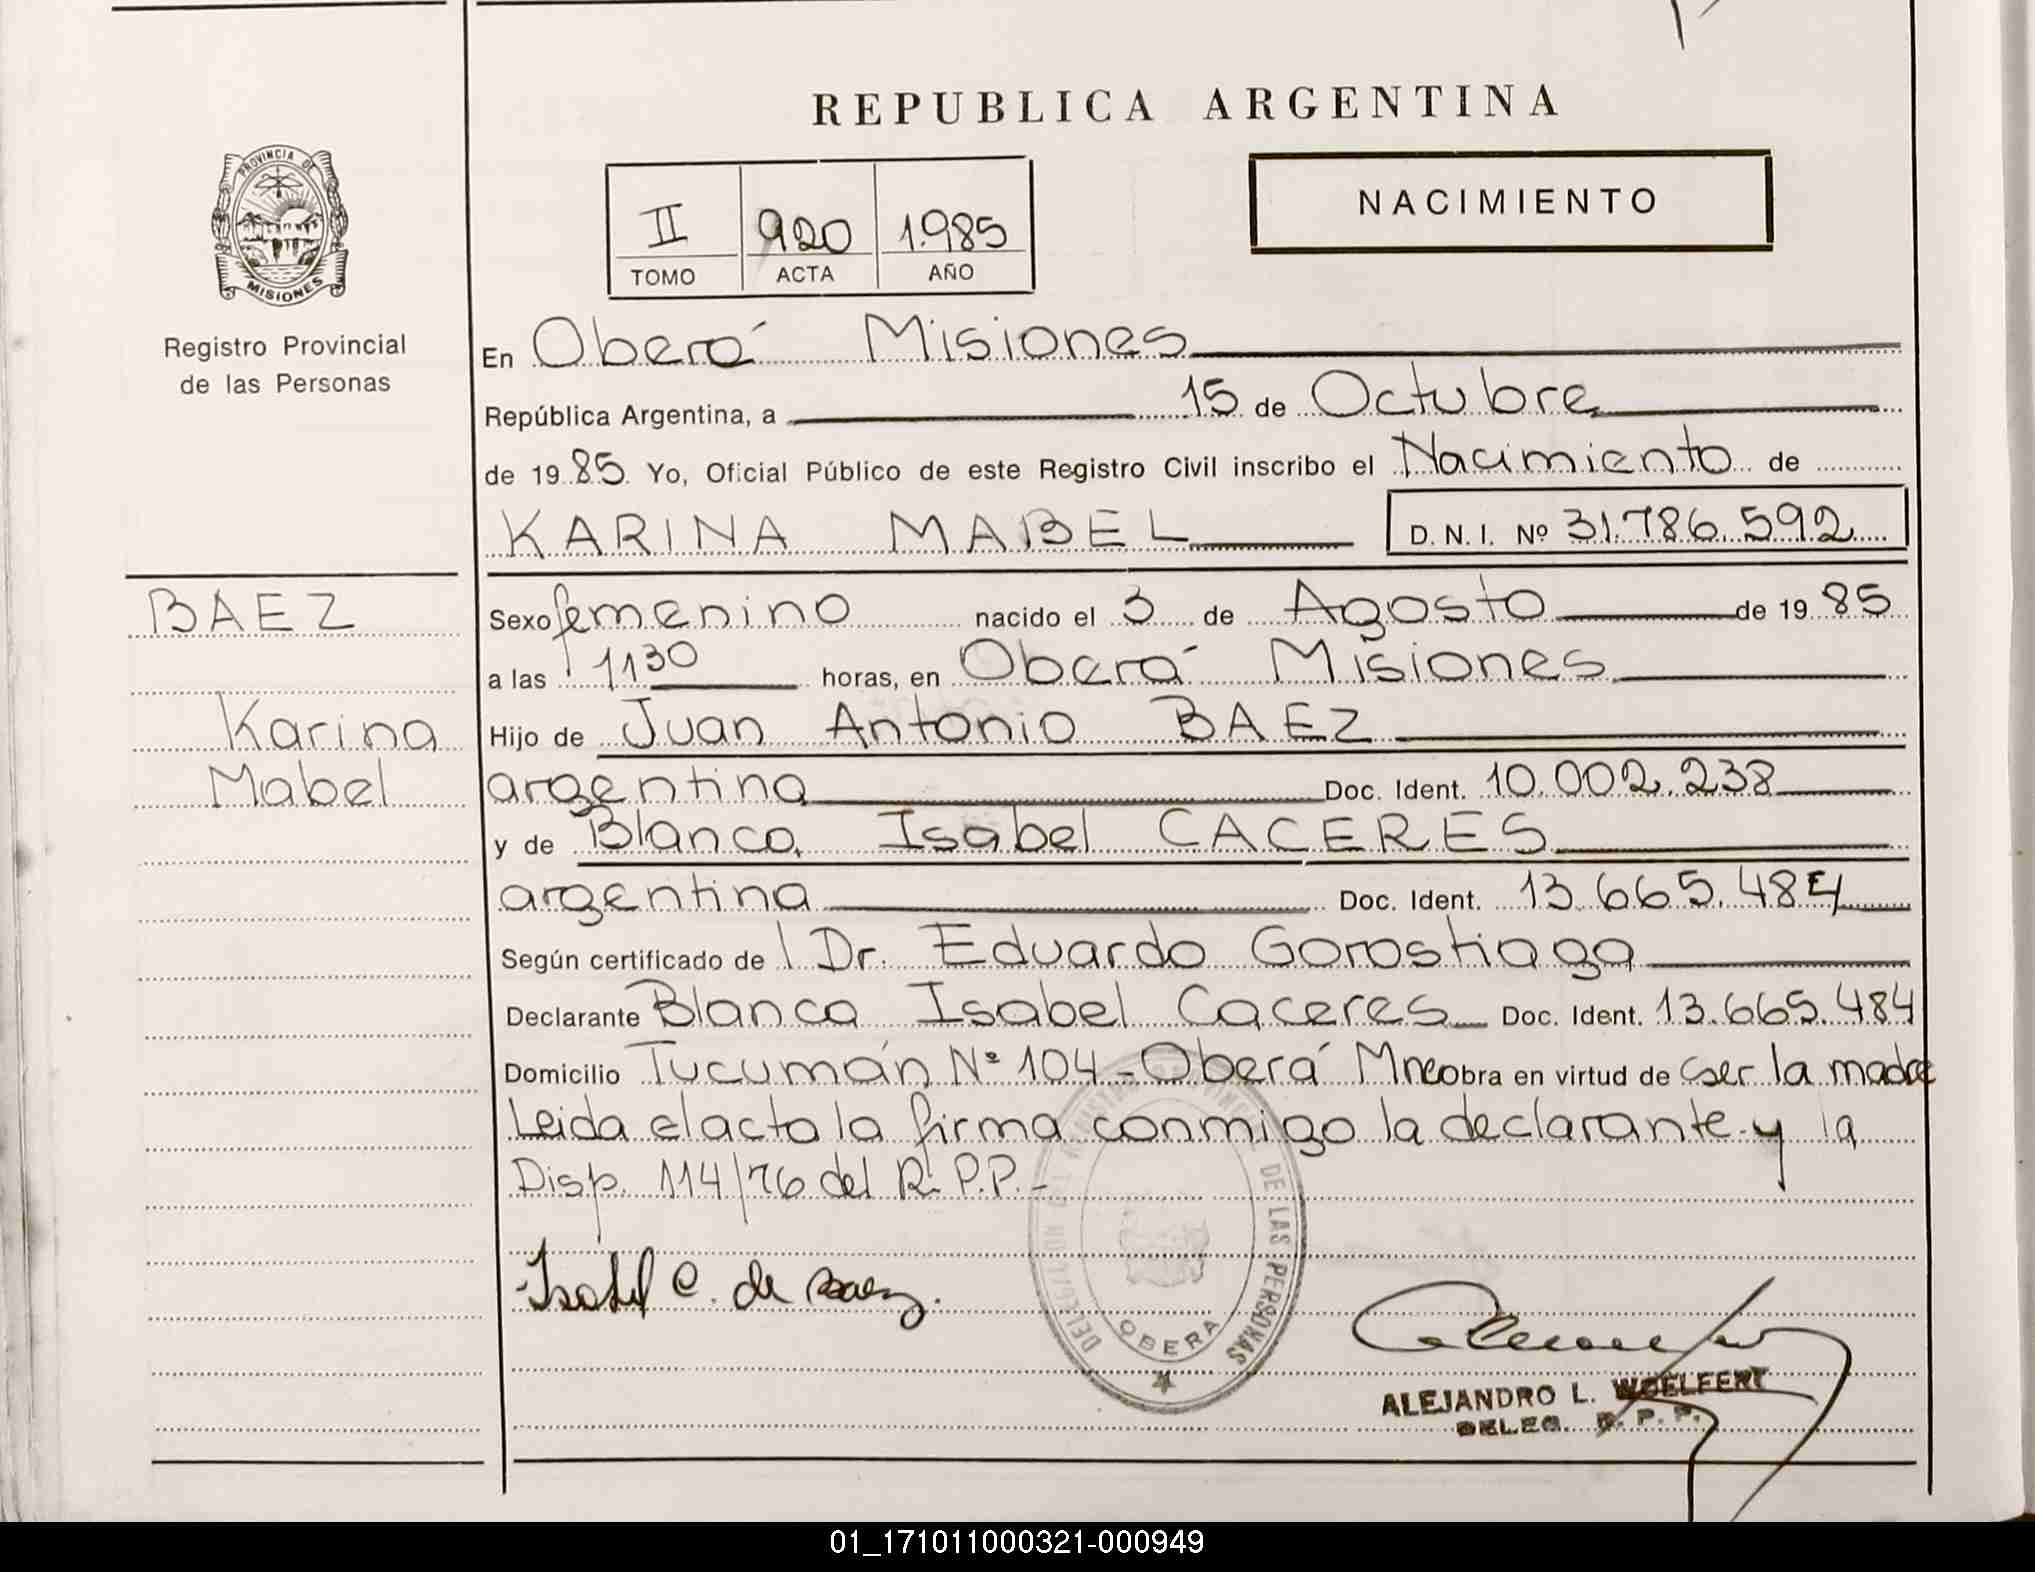 REPUBLICA ARGENTINA
PROVINCIA DE
MISIONES
Registro Provincial
de las Personas
II 920 1.985
TOMO ACTA AÑO
NACIMIENTO
En Oberá Misiones
República Argentina, a 15 de Octubre
de 19 85 Yo, Oficial Público de este Registro Civil inscribo el Nacimiento de
KARINA MABEL D. N. I. Nº 31.786.592
BAEZ
Karina
Mabel
Sexo femenino nacido el 3 de Agosto de 19 85
a las 11 30 horas, en Oberá Misiones
Hijo de Juan Antonio BAEZ
argentina Doc. Ident. 10.002.238
y de Blanca Isabel CACERES
argentina Doc. Ident. 13.665.484
Según certificado de Dr. Eduardo Gorostiaga
Declarante Blanca Isabel Caceres Doc. Ident. 13.665.484
Domicilio Tucumán Nº 104 - Oberá Mnes obra en virtud de ser la madre
Leida el acta la firma conmigo la declarante y la
Disp. 114/76 del R. P.P.-
Isabel C. de Baez.
DELEGACION DEL REGISTRO PROVINCIAL DE LAS PERSONAS
OBERA
ALEJANDRO L. WOELFERT
DELEG. R. P. P.
01_171011000321-000949